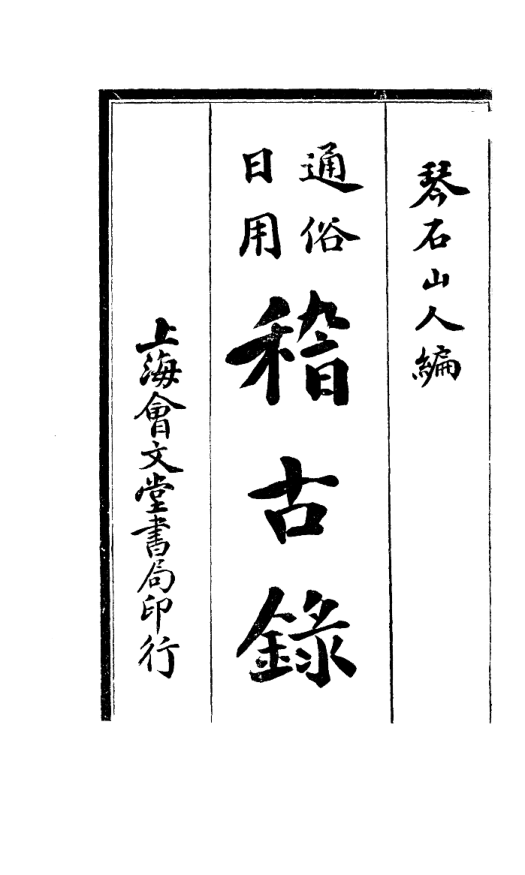 琴石山人編
通俗
日用
稽古錄
上海會文堂書局印行